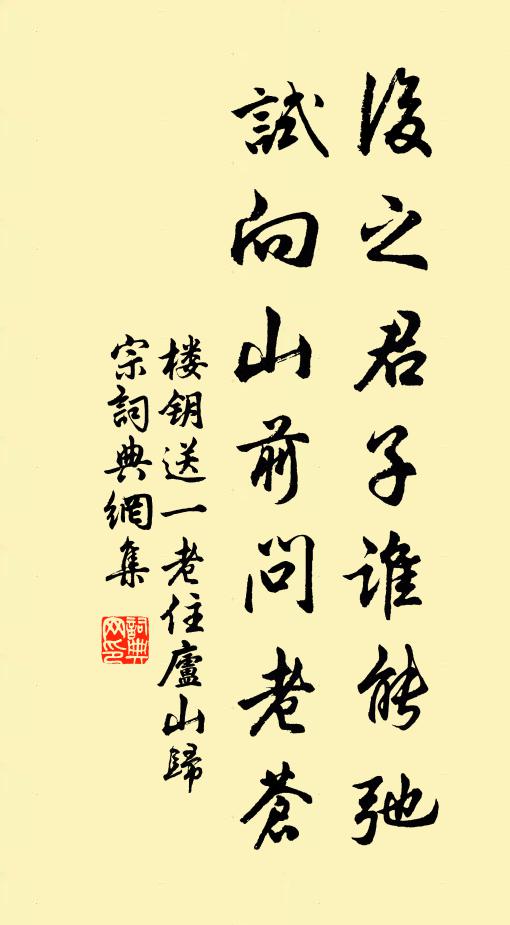 後之君子誰能弛
試向山前問老蒼
楼钥送一老住廬山歸
宗詞典網集
詞典
网印